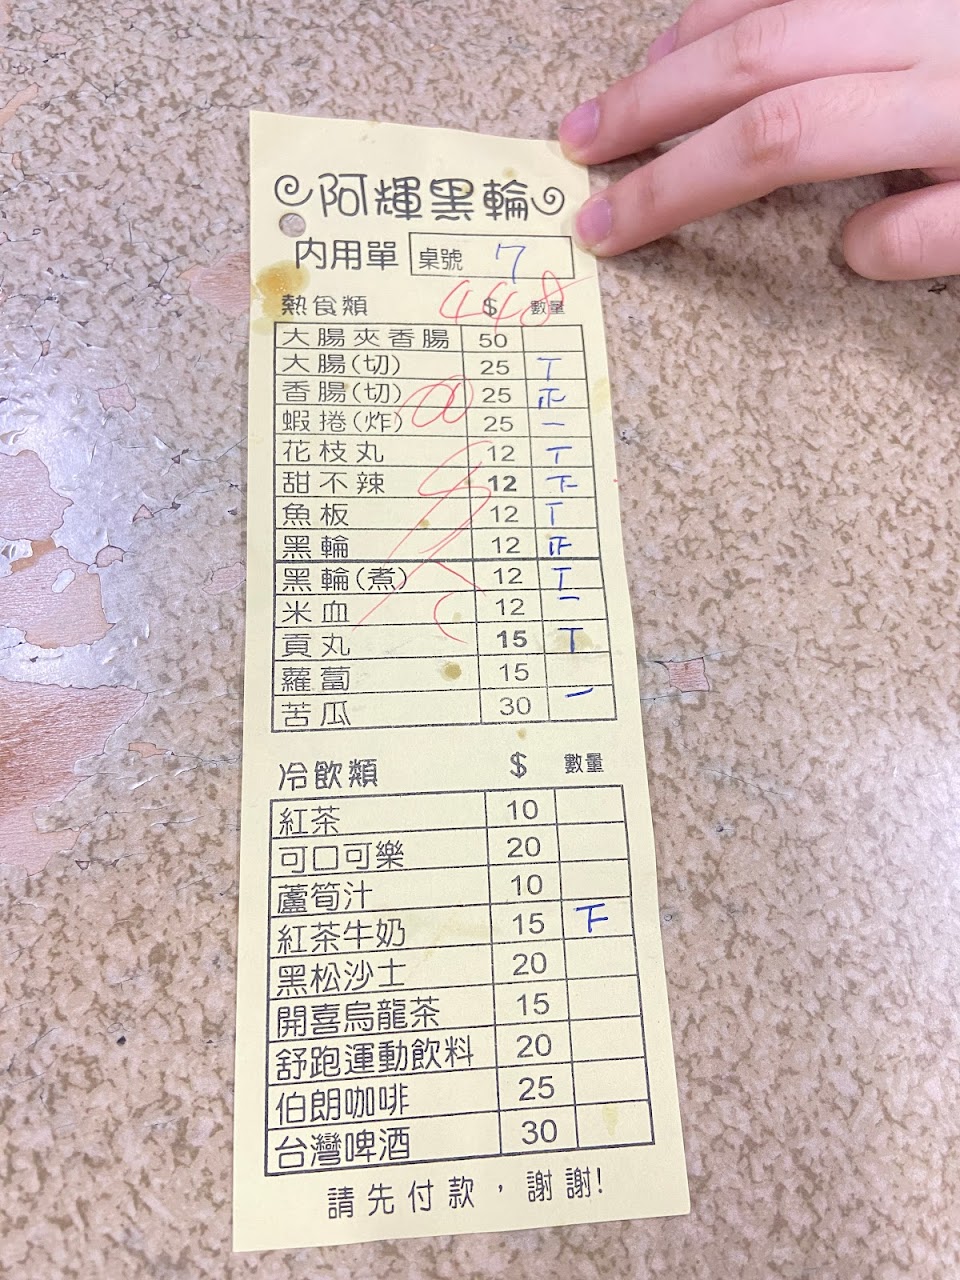 阿輝黑輪
內用單 桌號 7
448
熱食類 $ 數量
大腸夾香腸 50
大腸(切) 25 丅
香腸(切) 25 正
蝦捲(炸) 25 一
花枝丸 12 丅
甜不辣 12 下
魚板 12 丅
黑輪 12 正
黑輪(煮) 12
米血 12 一
貢丸 15 丅
蘿蔔 15
苦瓜 30 一
冷飲類 $ 數量
紅茶 10
可口可樂 20
蘆筍汁 10
紅茶牛奶 15 下
黑松沙士 20
開喜烏龍茶 15
舒跑運動飲料 20
伯朗咖啡 25
台灣啤酒 30
請先付款，謝謝!